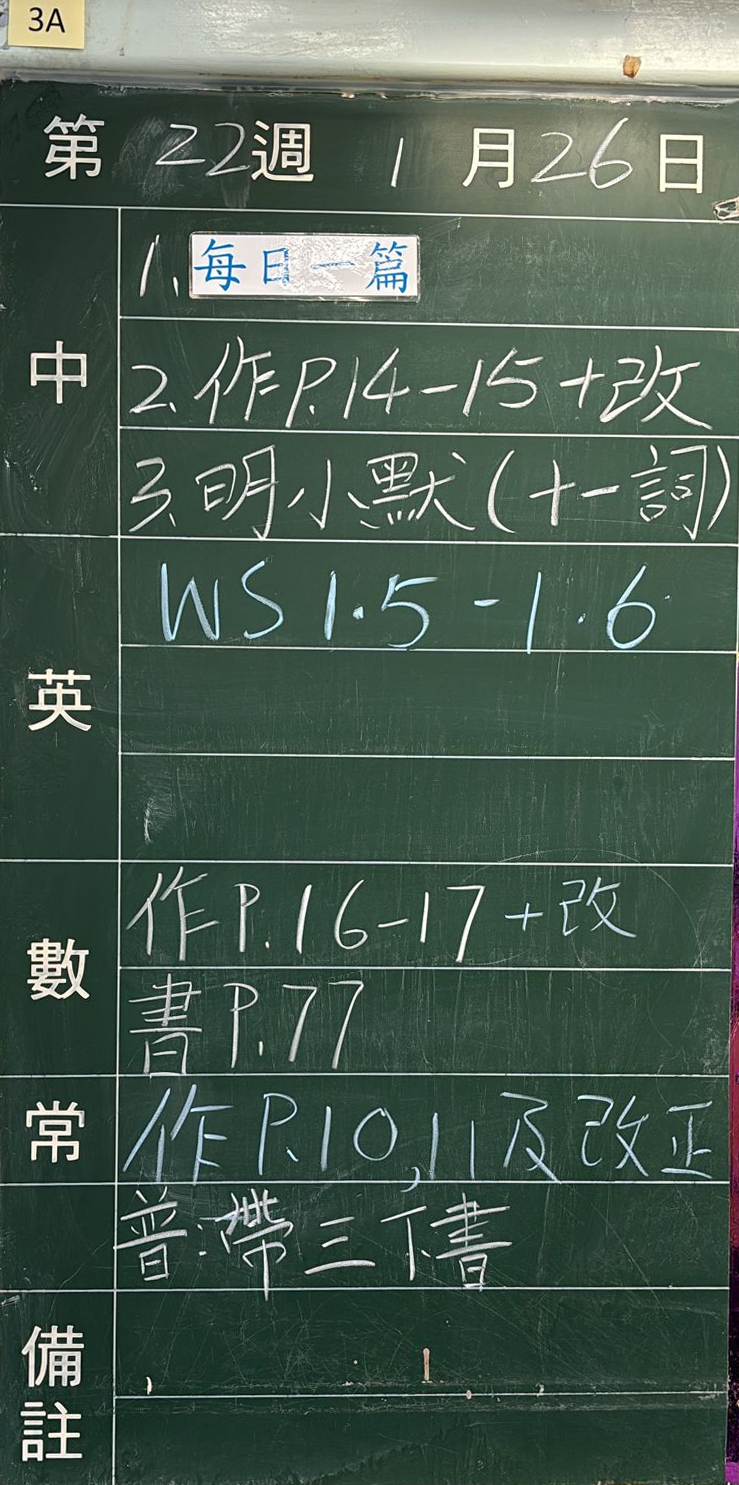 3A
第 22週 1月26日
中
1. 每日一篇
2. 作P.14-15+改
3. 明小默(十一詞)
英
WS 1.5-1.6
數
作P.16-17+改
書P.77
常
作P.10,11及改正
普:帶三下書
備註